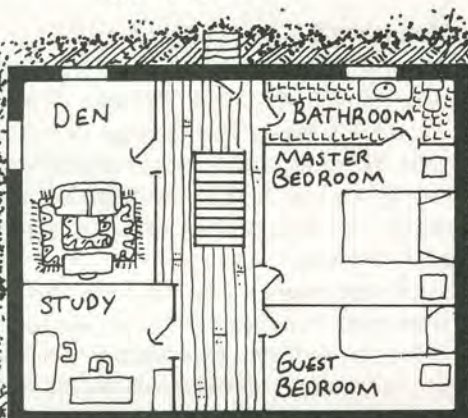 DEN
BATHROOM
MASTER
BEDROOM
STUDY
GUEST
BEDROOM